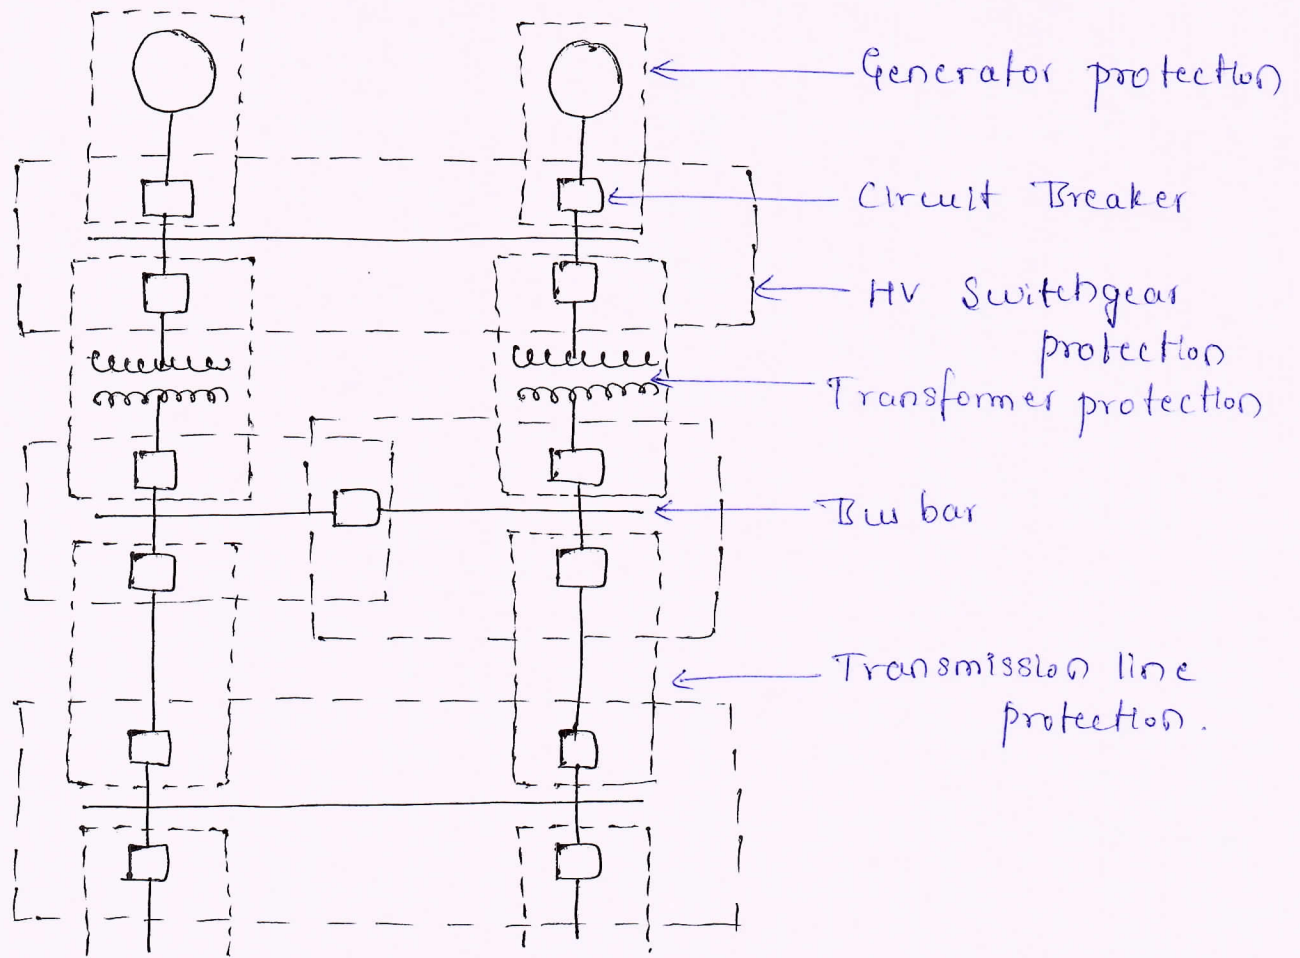 Generator protection
Circuit Breaker
HV Switchgear
protection
Transformer protection
Bus bar
Transmission line
protection.